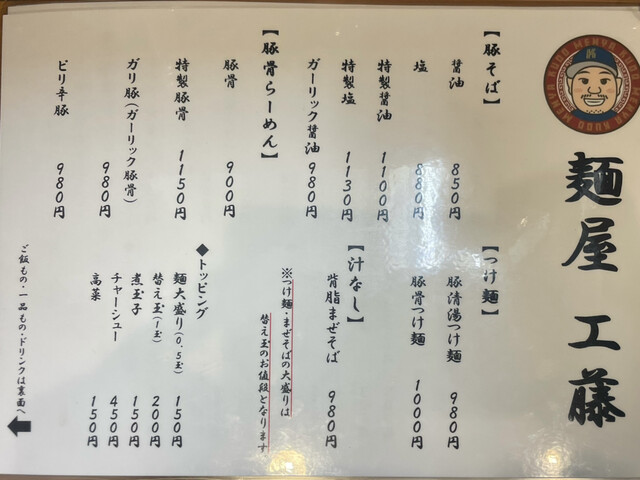 MENYA KUDO MENYA KUDO
K
麺屋 工藤
【豚そば】
醤油 850円
塩 880円
特製醤油 1100円
特製塩 1130円
ガーリック醤油 980円
【豚骨らーめん】
豚骨 900円
特製豚骨 1150円
ガリ豚(ガーリック豚骨) 980円
ピリ辛豚 980円
【つけ麺】
豚清湯つけ麺 980円
豚骨つけ麺 1000円
【汁なし】
背脂まぜそば 980円
※つけ麺・まぜそばの大盛りは
替え玉のお値段となります
◆トッピング
麺大盛り(0.5玉) 150円
替え玉(1玉) 200円
煮玉子 150円
チャーシュー 450円
高菜 150円
ご飯もの・一品もの・ドリンクは裏面へ